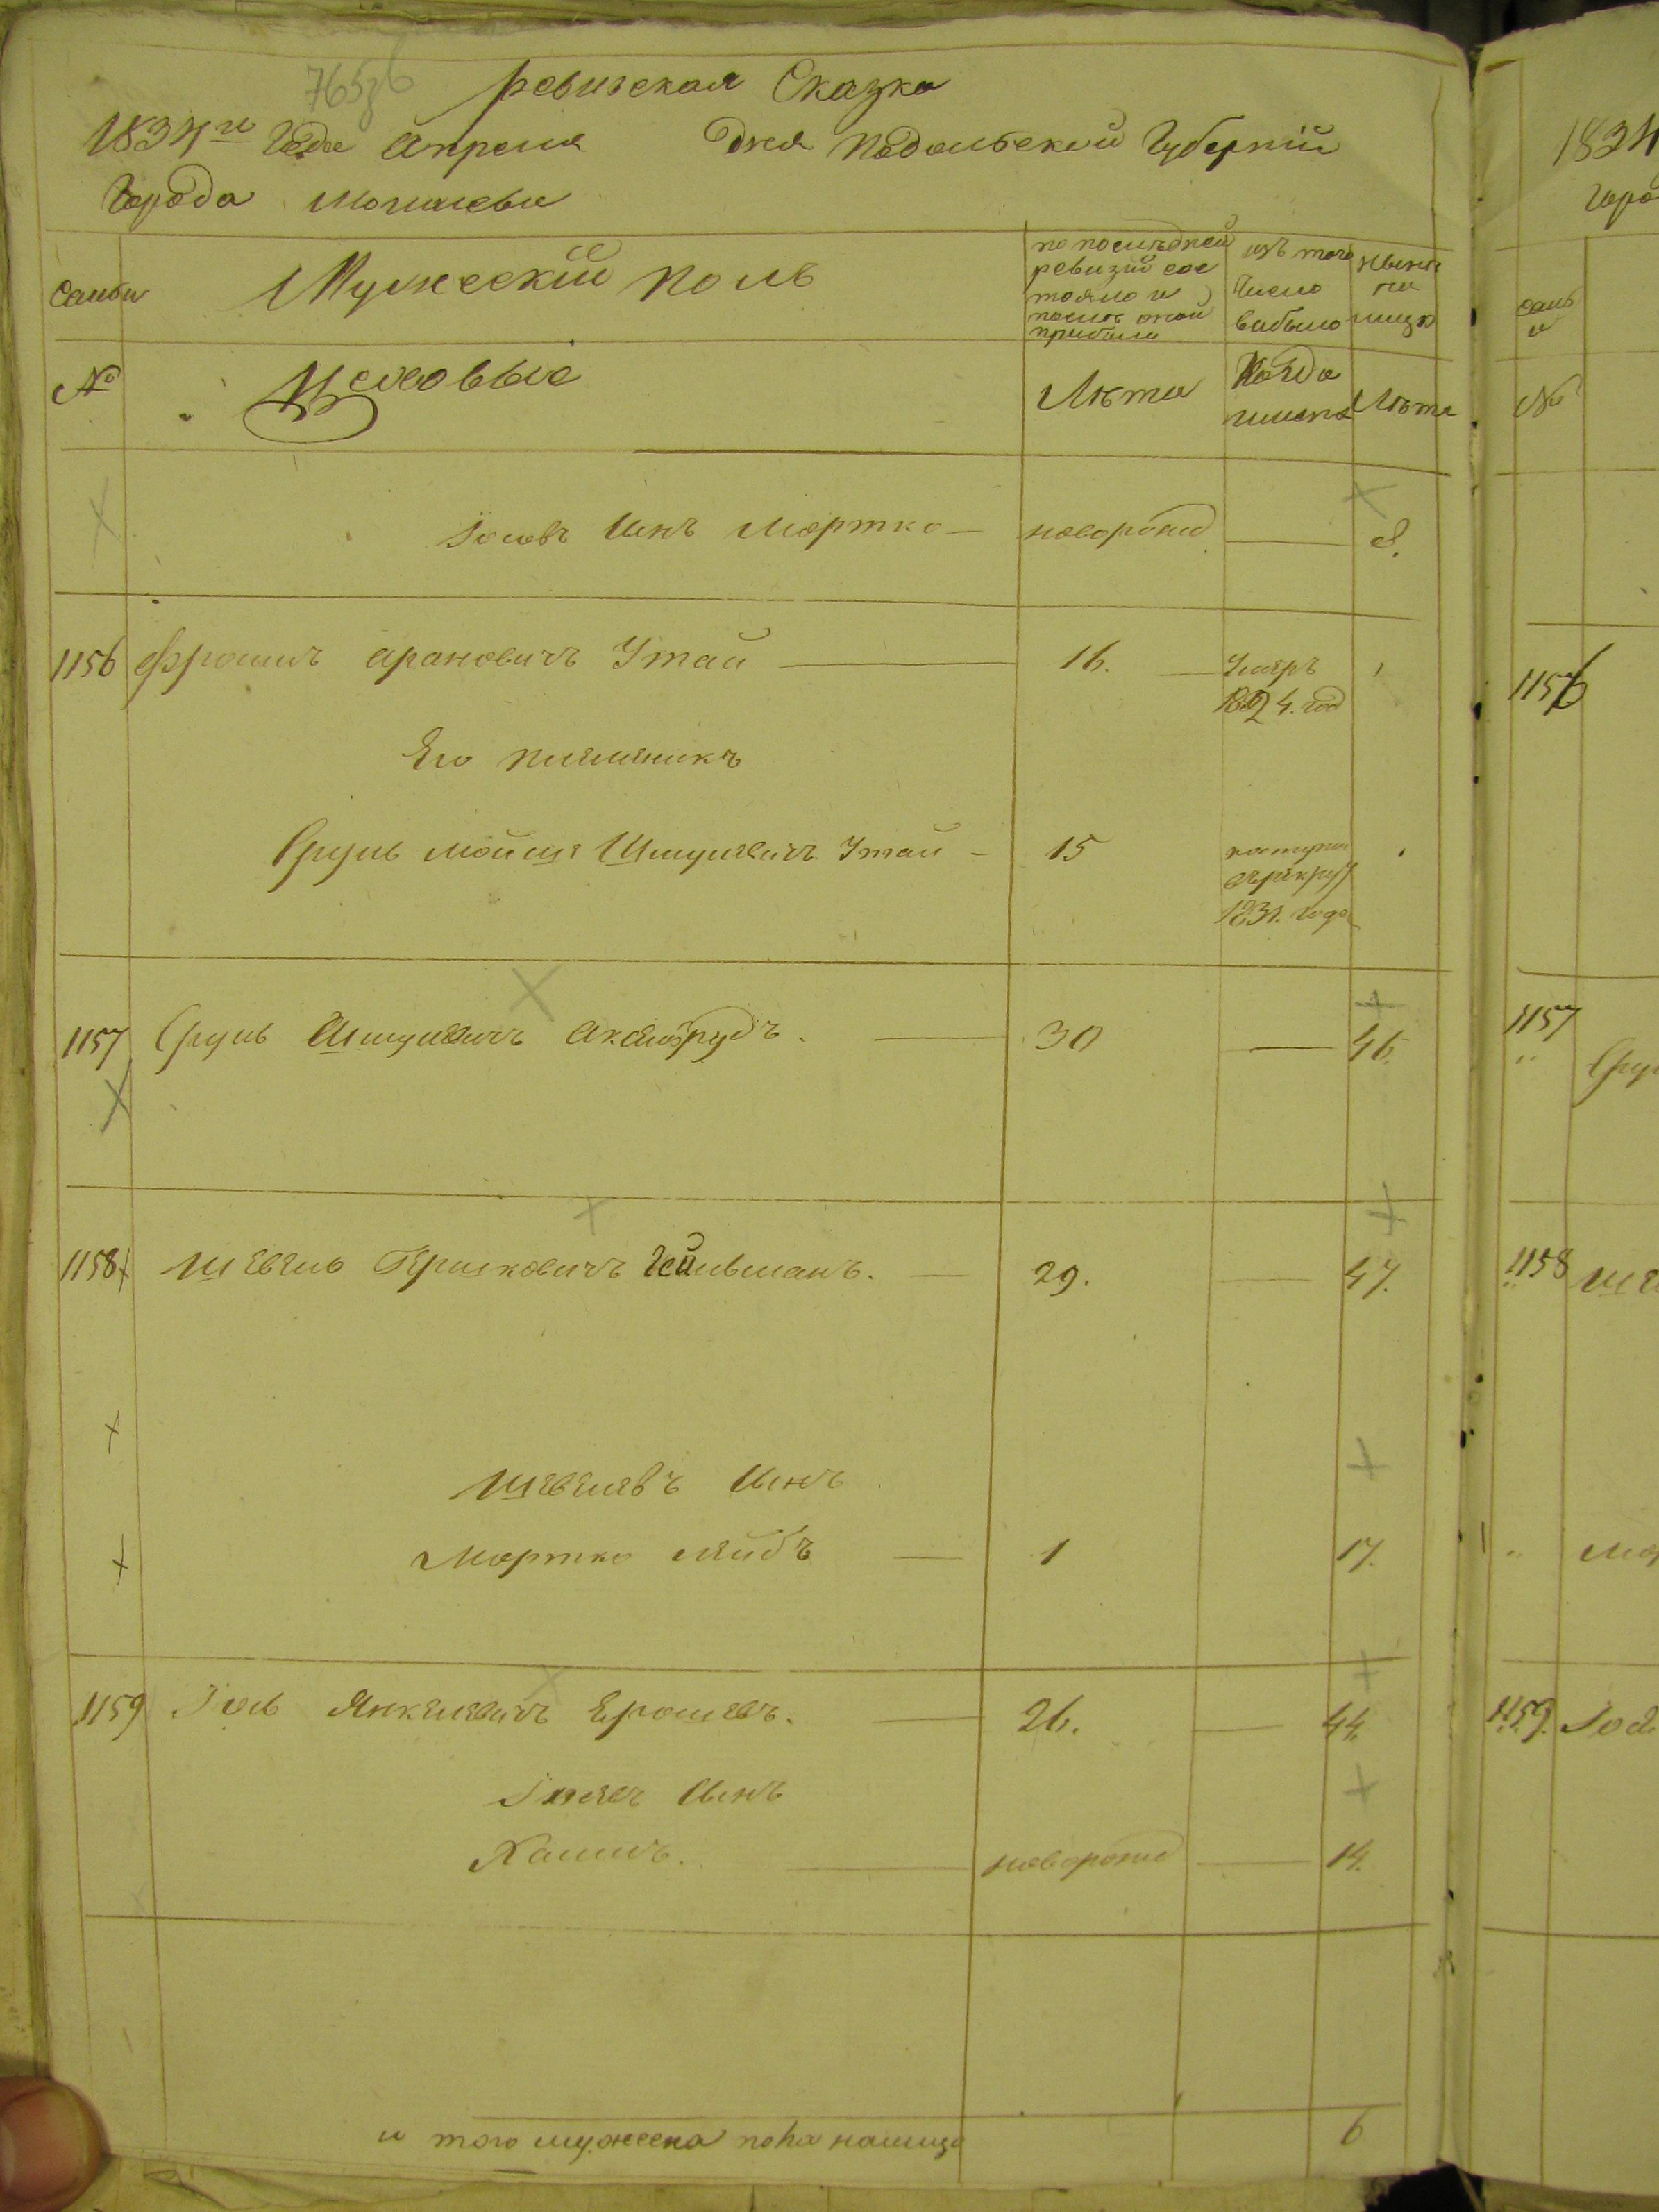 ревизская Сказка
1834го Года Апреля дня Подольской Губернiи
Города Могилева
семьи
Мужескiй полъ
по последней ревизiи состояло и после оной прибыло
изъ того числа выбыло
ныне на лицо
№
Лета
Когда именно
Лета
Iосiовъ Сынъ Мортко — новорожд — 8.
1156 Фроимъ Арановичъ Утай — 16. — Умеръ 1824. год
Его племяникъ
Сруль Мойше Шмулевичъ Утай — 15
1831. года
1157 Сруль Шмулевичъ — 30 — 46.
1158 Шевель Гершковичъ Гейльманъ. — 29. — 47.
Шевелевъ Сынъ
Мортко Лейбъ — 1 17.
1159 Iось Янкелевичъ — 26. — 44.
Сынъ
Хаимъ. — новорожд — 14.
и того мужеска пола на лицо 6
1834
Горо
семьи
№
1156
1157
Сру
1158 Ше
Мор
1159. Iос